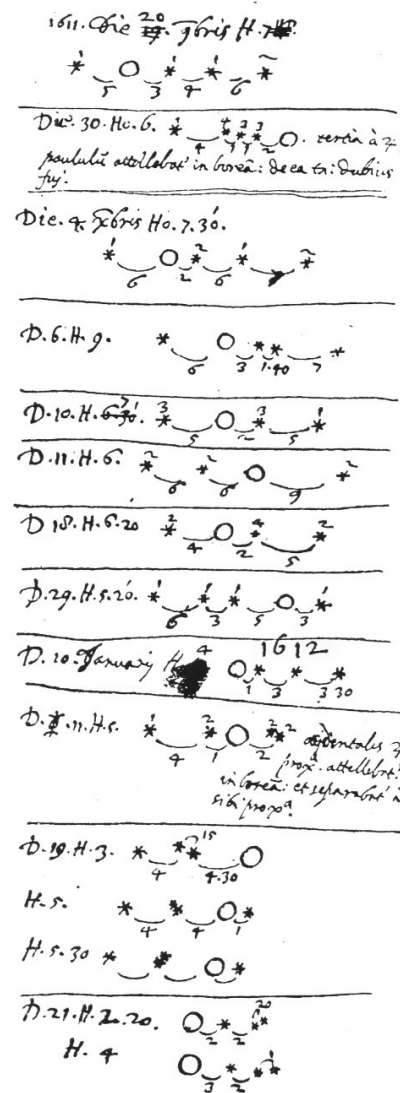 1611. Die 20 9bris H. 7
5 3 4 6
Die. 30. Ho. 6. 4 1 1 2 . tertia à ♃
paululũ attollebat' in boreã: de ea tñ: dubius
fui.
Die. 4. Xbris Ho. 7. 30'.
6 2 6
D. 6. H. 9. 6 3 1.40 7
D. 10. H. 5 2 5
D. 11. H. 6. 6 6 9
D 18. H. 6. 20 4 2 5
D. 29. H. 5. 20'. 6 3 5 3
D. 10. Januarij H 4 1612
1 3 3 30
D. 11. H. 5. 4 1 2 occidentalis ♃
proxª. attollebat'
in boreã: et separabat' à
sibi proxª.
D. 19. H. 3. 4 15 4.30
H. 5. 4 4 1
H. 5. 30
D. 21. H. 2. 20. 2 2 20
H. 4 3 2 1